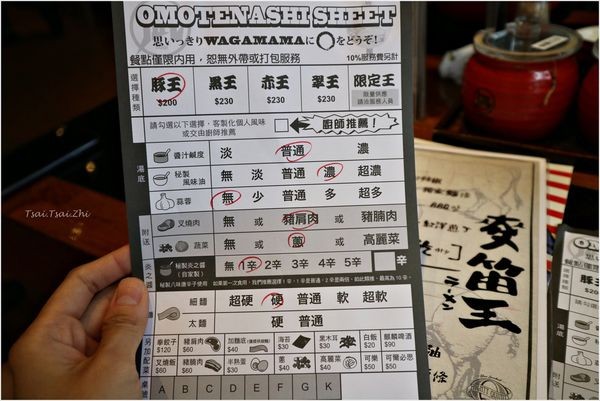 OMOTENASHI SHEET
思いっきりWAGAMAMAに◯をどうぞ!
餐點僅限內用，恕無外帶或打包服務 10%服務費另計
選擇種類
豚王 黑王 赤王 翠王 限定王
$200 $230 $230 $230 限量供應 請洽服務人員
請勾選以下選擇，客製化個人風味
或交由廚師推薦
廚師推薦！
湯底
醬汁鹹度 淡 普通 濃
秘製風味油 無 淡 普通 濃 超濃
蒜蓉 無 少 普通 多 超多
附送
叉燒肉 無 或 豬肩肉 或 豬腩肉
蔬菜 無 或 蔥 或 高麗菜
炎之醬
秘製炎之醬(自家製) 無 1辛 2辛 3辛 4辛 5辛 辛
麵
細麵 超硬 硬 普通 軟 超軟
太麵 硬 普通
另加配菜
拳骰子 $120 豬肩肉 $60 加麵底 $40 海苔 $30 黑木耳 $30 白飯 $20 麒麟啤酒 $90
叉燒飯 $60 豬腩肉 $60 半熟蛋 $30 蔥 $40 高麗菜 $40 可樂 $50 可爾必思 $50
桌號 A B C D E F G K
Tsai.Tsai.Zhi
笛王
ラーメン
OMOTENASHI
思いっきり
餐點僅限內用
豚王
$200